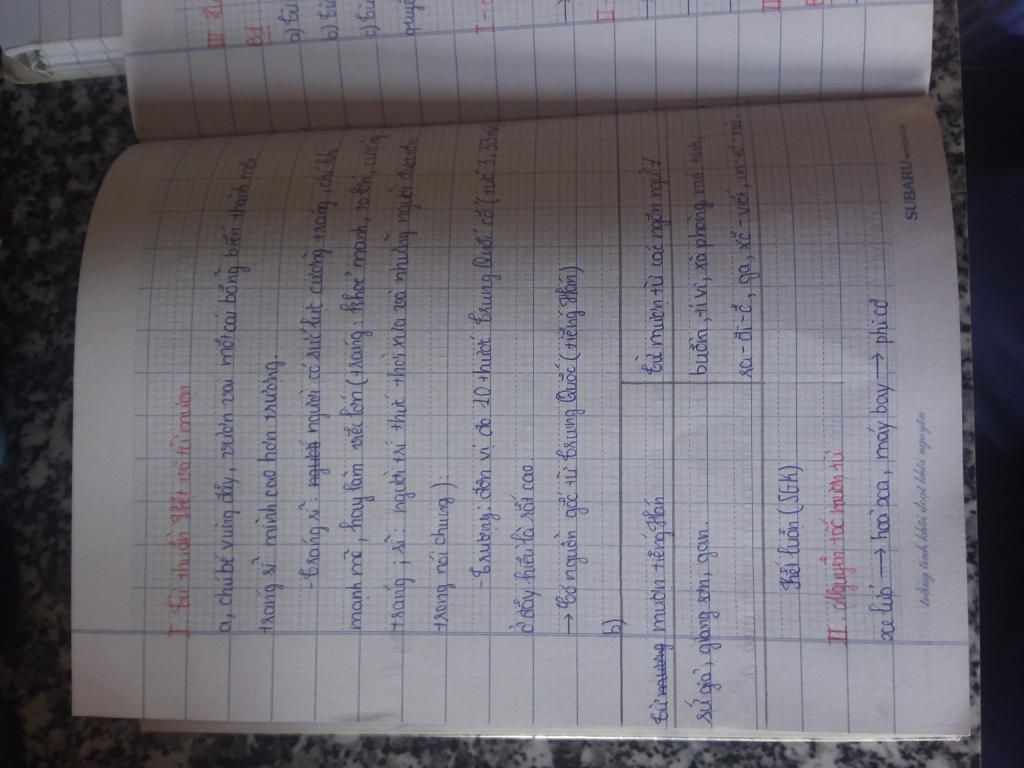 I. Từ thuần Việt và từ mượn
a, chú bé vùng dậy, vươn vai một cái bỗng biến thành một
tráng sĩ mình cao hơn trượng.
- Tráng sĩ: người có sức lực cường tráng, chí khí
mạnh mẽ, hay làm việc lớn (tráng: khoẻ mạnh, to lớn, cường
tráng; sĩ: người trí thức thời xưa và những người được tôn
trọng nói chung).
- Trượng: đơn vị đo 10 thước Trung Quốc cổ (tức 3,33m)
ở đây hiểu là rất cao.
→ Có nguồn gốc từ Trung Quốc (tiếng Hán)
b)
Từ mượn tiếng Hán
Từ mượn từ các ngôn ngữ #
sứ giả, giang sơn, gan.
buồm, ti vi, xà phòng, mít tinh,
ra-đi-ô, ga, xô-viết, in-tơ-nét
Kết luận (SGK)
II. Nguyên tắc mượn từ
xe lửa → hoả xa, máy bay → phi cơ
SUBARU
III
B1
a)
b)
c)
I -
II -